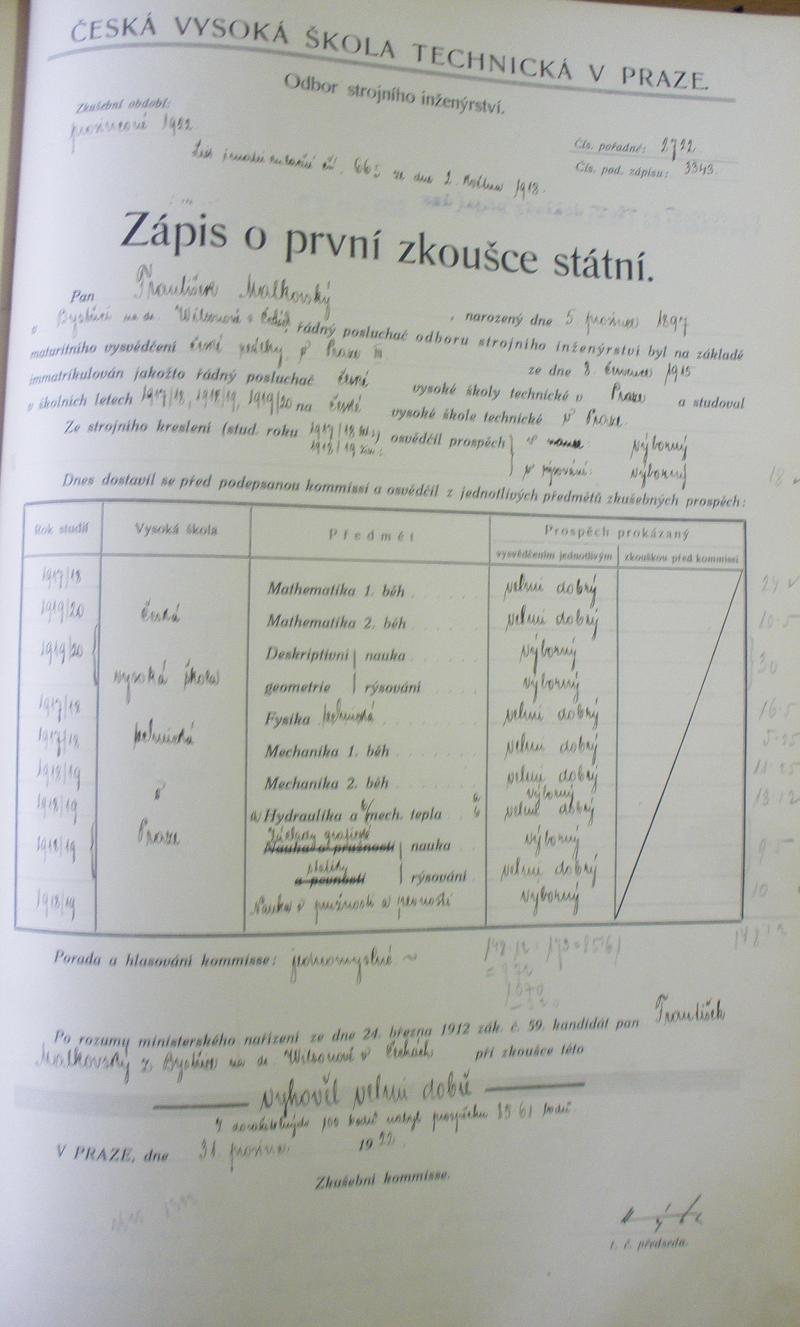 ČESKÁ VYSOKÁ ŠKOLA TECHNICKÁ V PRAZE.
Odbor strojního inženýrství.
Zkušební období:
prosincové 1922
Čís. pořadné: 2722
Čís. pod. zápisu: 3343.
List imatrikulační čís. 665 ze dne 2. 1918.
Zápis o první zkoušce státní.
Pan František Malkovský, narozený dne 5 prosince 1897
v Bystřici na dr. Wilsonově v Čechách, řádný posluchač odboru strojního inženýrství byl na základě
maturitního vysvědčení české v Praze III ze dne 8. července 1915
immatrikulován jakožto řádný posluchač české vysoké školy technické v Praze a studoval
v školních letech 1917/18, 1918/19, 1919/20 na české vysoké škole technické v Praze.
Ze strojního kreslení (stud. roku 1917/18 1918/19) osvědčil prospěch v nauce: výborný
v rýsování: výborný
18
Dnes dostavil se před podepsanou kommissí a osvědčil z jednotlivých předmětů zkušebných prospěch:
Rok studií Vysoká škola Předmět Prospěch prokázaný
vysvědčením jednotlivým zkouškou před kommissí
1917/18 Mathematika 1. běh velmi dobrý 24
1919/20 česká Mathematika 2. běh velmi dobrý 10.5
1919/20 Deskriptivní nauka výborný
vysoká škola geometrie rýsování výborný 30
1917/18 Fysika technická velmi dobrý 16.5
1917/18 technická Mechanika 1. běh velmi dobrý
1918/19 Mechanika 2. běh velmi dobrý
1918/19 v a) Hydraulika a b) mech. tepla a výborný b velmi dobrý 13.12
1918/19 Praze Základy grafické Nauka o pružnosti nauka výborný 9.5
statiky a pevnosti rýsování velmi dobrý
1918/19 Nauka o pružnosti a pevnosti výborný 10
Porada a hlasování kommisse: jednomyslně
148.12 : 173 = 8561
Po rozumu ministerského nařízení ze dne 24. března 1912 zák. č. 59. kandidát pan František
Malkovský z Bystřice na dr. Wilsonově v Čechách při zkoušce této
vyhověl velmi dobře
z dosažitelných 100 bodů nabyl prospěchu 85.61 bodů.
V PRAZE, dne 31. prosince 1922.
Zkušební kommisse.
t. č. předseda.